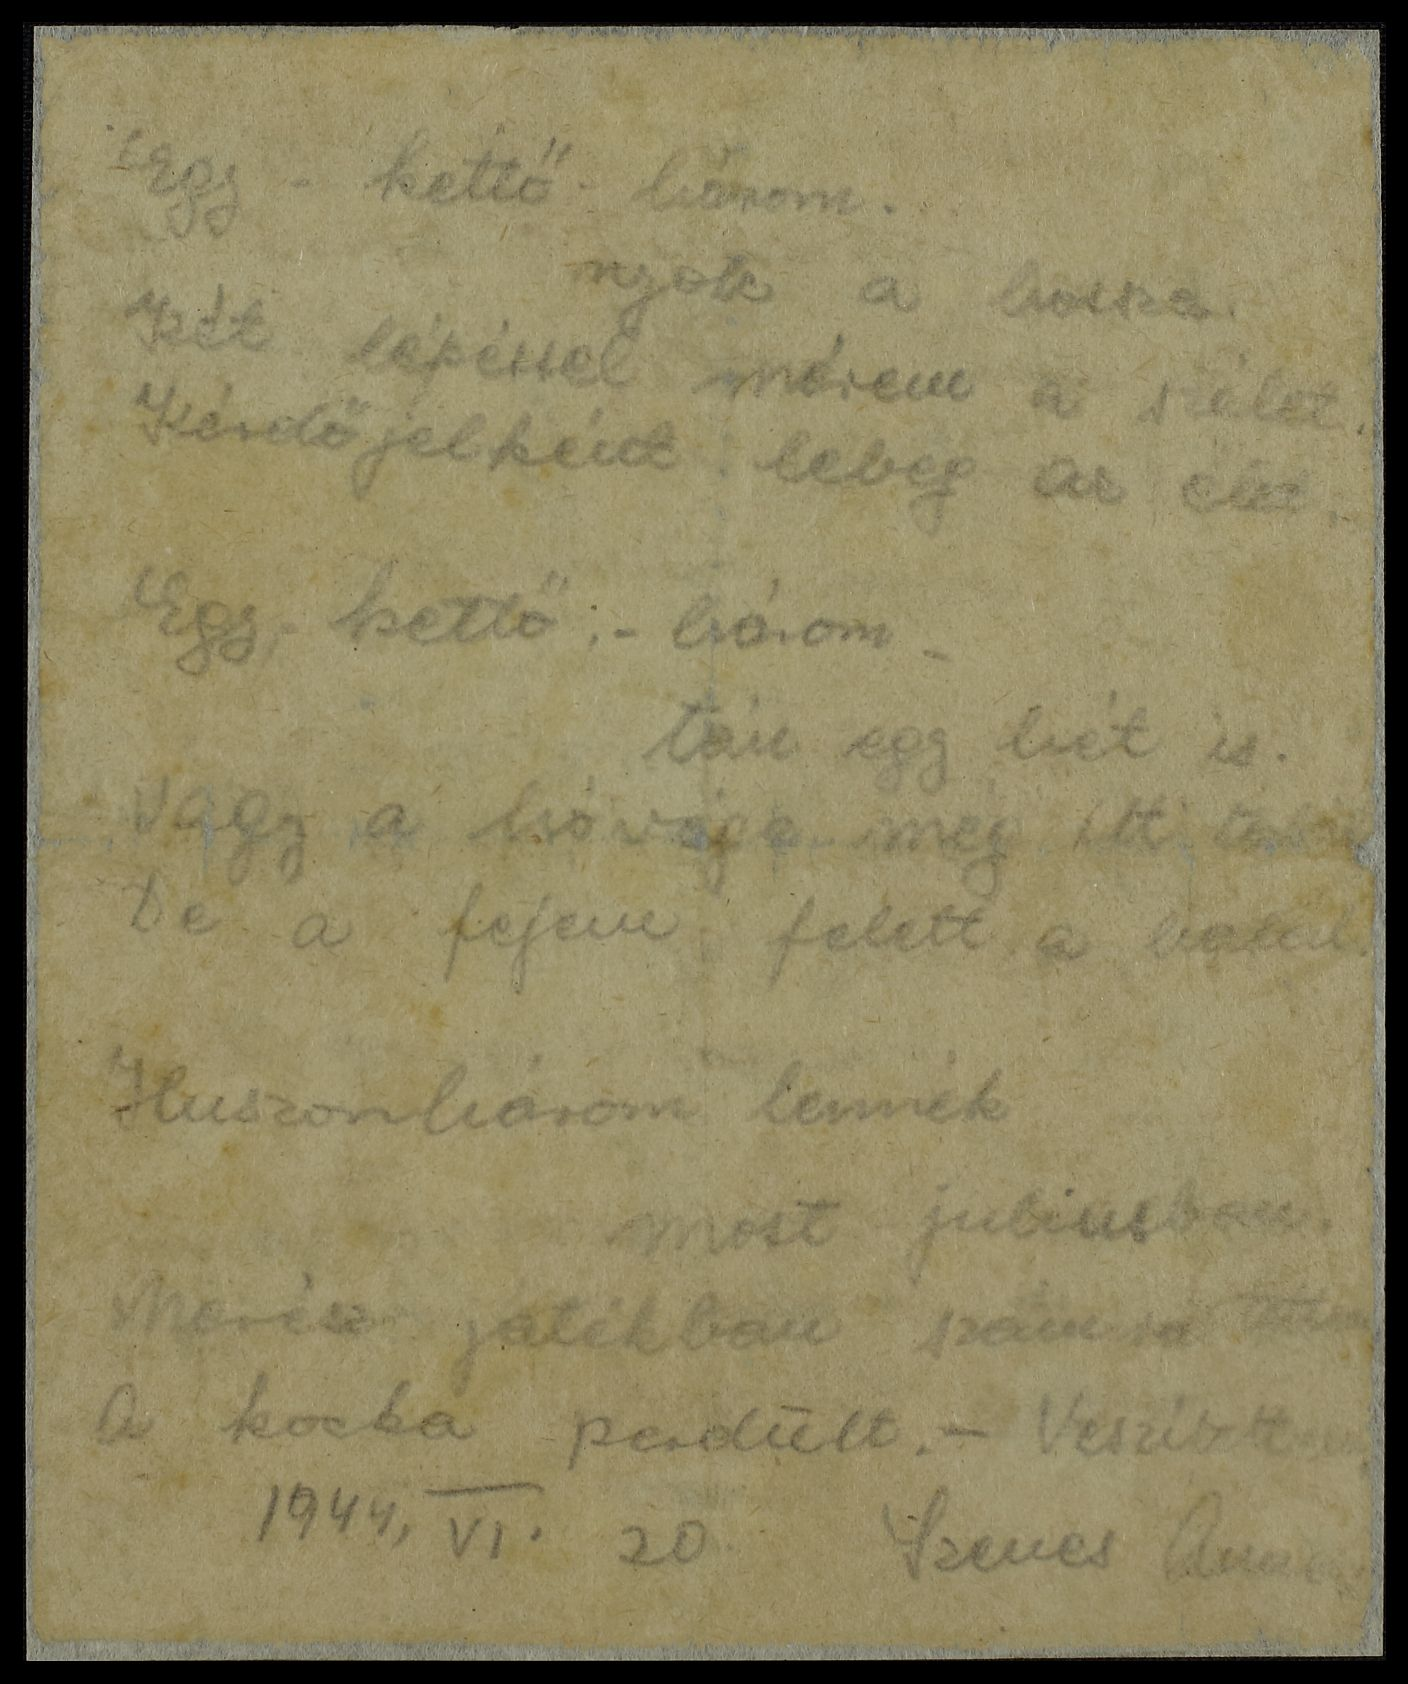 Egy - kettő - három.
nyolc a hossza.
Két lépéssel mérem a szélét.
Kérdőjelként lebeg az élet.
Egy, - kettő, - három -
tán egy hét is.
Vagy a hóvége még itt talál
De a fejem felett a halál.
Huszonhárom lennék
most juliusban.
Merész játékban számra
A kocka perdült. - Vesztettem
1944. VI. 20 Szenes Anna